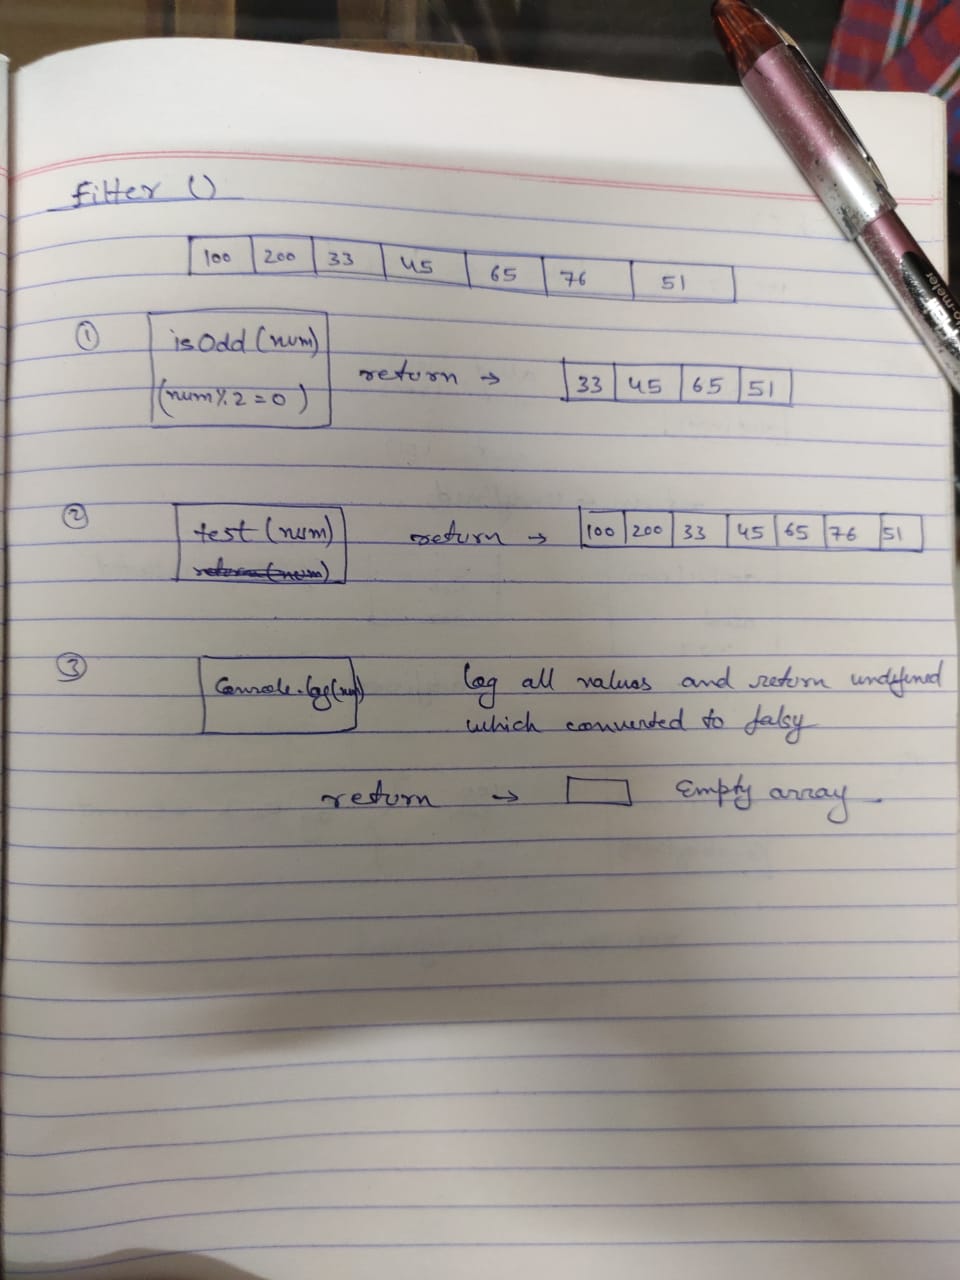 filter ()
100 200 33 45 65 76 51
① isOdd (num)
(num % 2 = 0)
return → 33 45 65 51
② test (num) return → 100 200 33 45 65 76 51
return (num)
③ Console.log(num) log all values and return undefined
which converted to falsy
return → Empty array